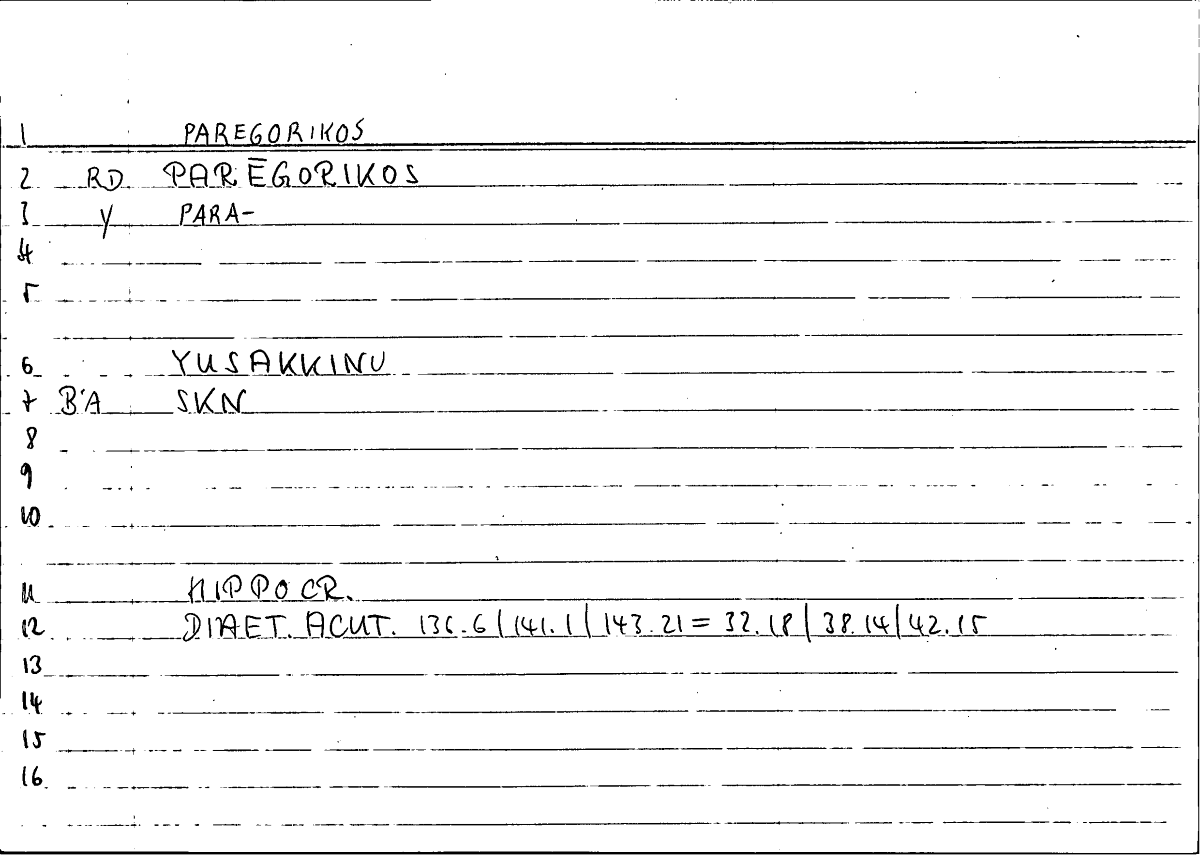 1 PAREGORIKOS
2 RD PARĒGORIKOS
3 Y PARA-
4
5
6 YUSAKKINU
7 B'A SKN
8
9
10
11 HIPPOCR.
12 DIAET. ACUT. 136.6|141.1|143.21=32.18|38.14|42.15
13
14
15
16